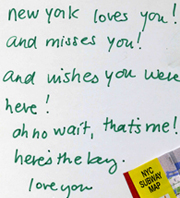 new york loves you!
and misses you!
and wishes you were
here!
oh no wait, that's me!
here's the key.
love you
NYC
SUBWAY
MAP